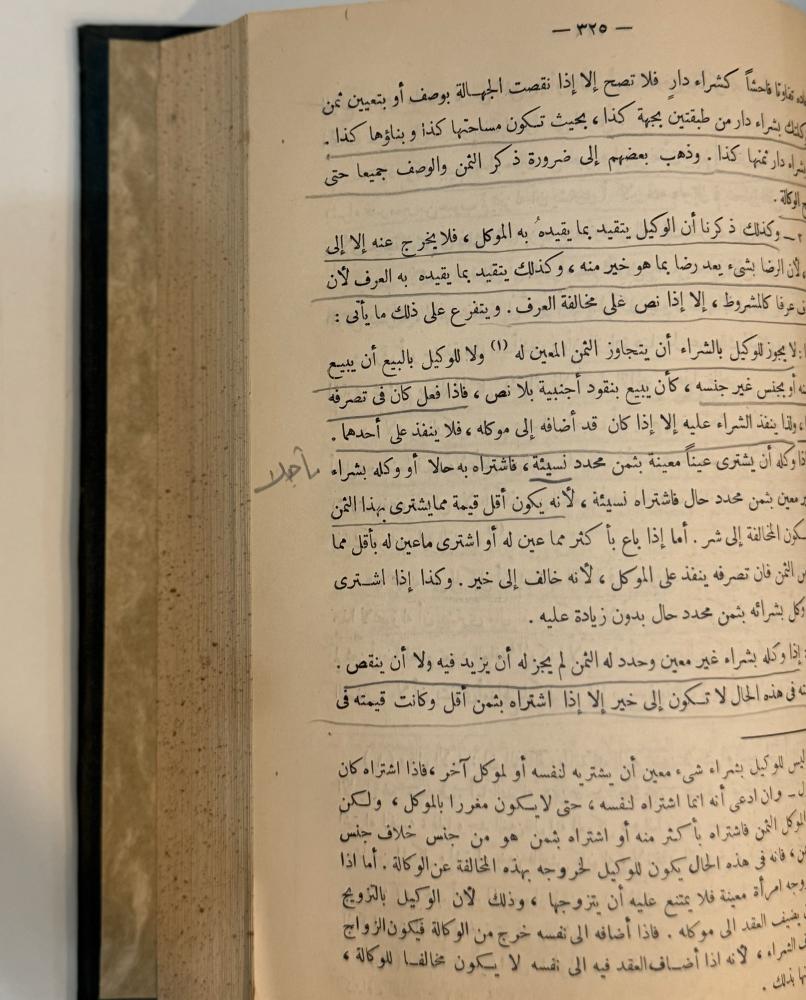 — ٣٢٥ —
تفاوتا فاحشاً كشراء دارٍ فلا تصح إلا إذا نقصت الجهالة بوصف أو بتعيين ثمن
بشراء دار من طبقتين بجهة كذا ، بحيث تكون مساحتها كذا وبناؤها كذا .
دار ثمنها كذا . وذهب بعضهم إلى ضرورة ذكر الثمن والوصف جميعا حتى
الوكالة .
٢ ــ وكذلك ذكرنا أن الوكيل يتقيد بما يقيدهُ به الموكل ، فلا يخرج عنه إلا إلى
لأن الرضا بشىء يعد رضا بما هو خير منه ، وكذلك يتقيد بما يقيده به العرف لأن
عرفا كالمشروط ، إلا إذا نص على مخالفة العرف . ويتفرع على ذلك ما يأتى :
لا يجوز للوكيل بالشراء أن يتجاوز الثمن المعين له (١) ولا للوكيل بالبيع أن يبيع
أو بجنس غير جنسه ، كأن يبيع بنقود أجنبية بلا نص ، فاذا فعل كان فى تصرفه
ولذا ينفذ الشراء عليه إلا إذا كان قد أضافه إلى موكله ، فلا ينفذ على أحدهما .
وكله أن يشترى عيناً معينة بثمن محدد نسيئة ، فاشتراه به حالا أو وكله بشراء
معين بثمن محدد حال فاشتراه نسيئة ، لأنه يكون أقل قيمة مما يشترى بهذا الثمن
المخالفة إلى شر . أما إذا باع بأكثر مما عين له أو اشترى ماعين له بأقل مما
الثمن فان تصرفه ينفذ على الموكل ، لأنه خالف إلى خير . وكذا إذا اشترى
وكل بشرائه بثمن محدد حال بدون زيادة عليه .
إذا وكله بشراء غير معين وحدد له الثمن لم يجز له أن يزيد فيه ولا أن ينقص .
فى هذه الحال لا تكون إلى خير إلا إذا اشتراه بثمن أقل وكانت قيمته فى
ليس للوكيل بشراء شىء معين أن يشتريه لنفسه أو لموكل آخر ، فاذا اشتراه كان
وان ادعى أنه انما اشتراه لنفسه ، حتى لا يكون مغررا بالموكل ، ولكن
الموكل الثمن فاشتراه بأكثر منه أو اشتراه بثمن هو من جنس خلاف جنس
فانه فى هذه الحال يكون للوكيل لخروجه بهذه المخالفة عن الوكالة . أما اذا
امرأة معينة فلا يمتنع عليه أن يتزوجها ، وذلك لأن الوكيل بالتزويج
يضيف العقد الى موكله . فاذا أضافه الى نفسه خرج من الوكالة فيكون الزواج
الشراء ، لأنه اذا أضاف العقد فيه الى نفسه لا يكون مخالفا للوكالة ،
بذلك .